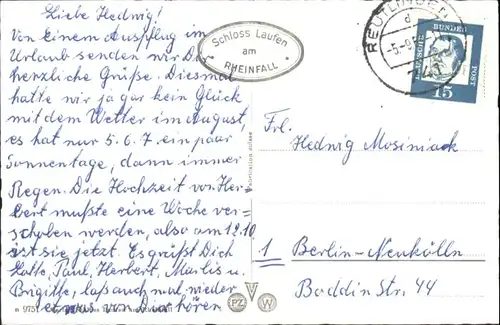 Liebe Hedwig!
Von einem Ausflug im
Urlaub senden wir Dir
herzliche Grüße. Diesmal
hatte wir ja gar kein Glück
mit dem Wetter im August,
es hat nur 5. 6. 7 ein paar
Sonnentage, dann immer
Regen. Die Hochzeit von Her-
bert mußte eine Woche ver-
schoben werden, also am 12.10
ist sie jetzt. Es grüßt Dich
Paul, Herbert, Marlis u.
Brigitte, laß auch mal wieder
etwas von Dir hören
Schloss Laufen
am
RHEINFALL
REUTLINGEN
d
DEUTSCHE BUNDESPOST
15
Frl.
Hedwig Mosiniack
1 Berlin-Neukölln
Boddin Str. 44
PZ
W